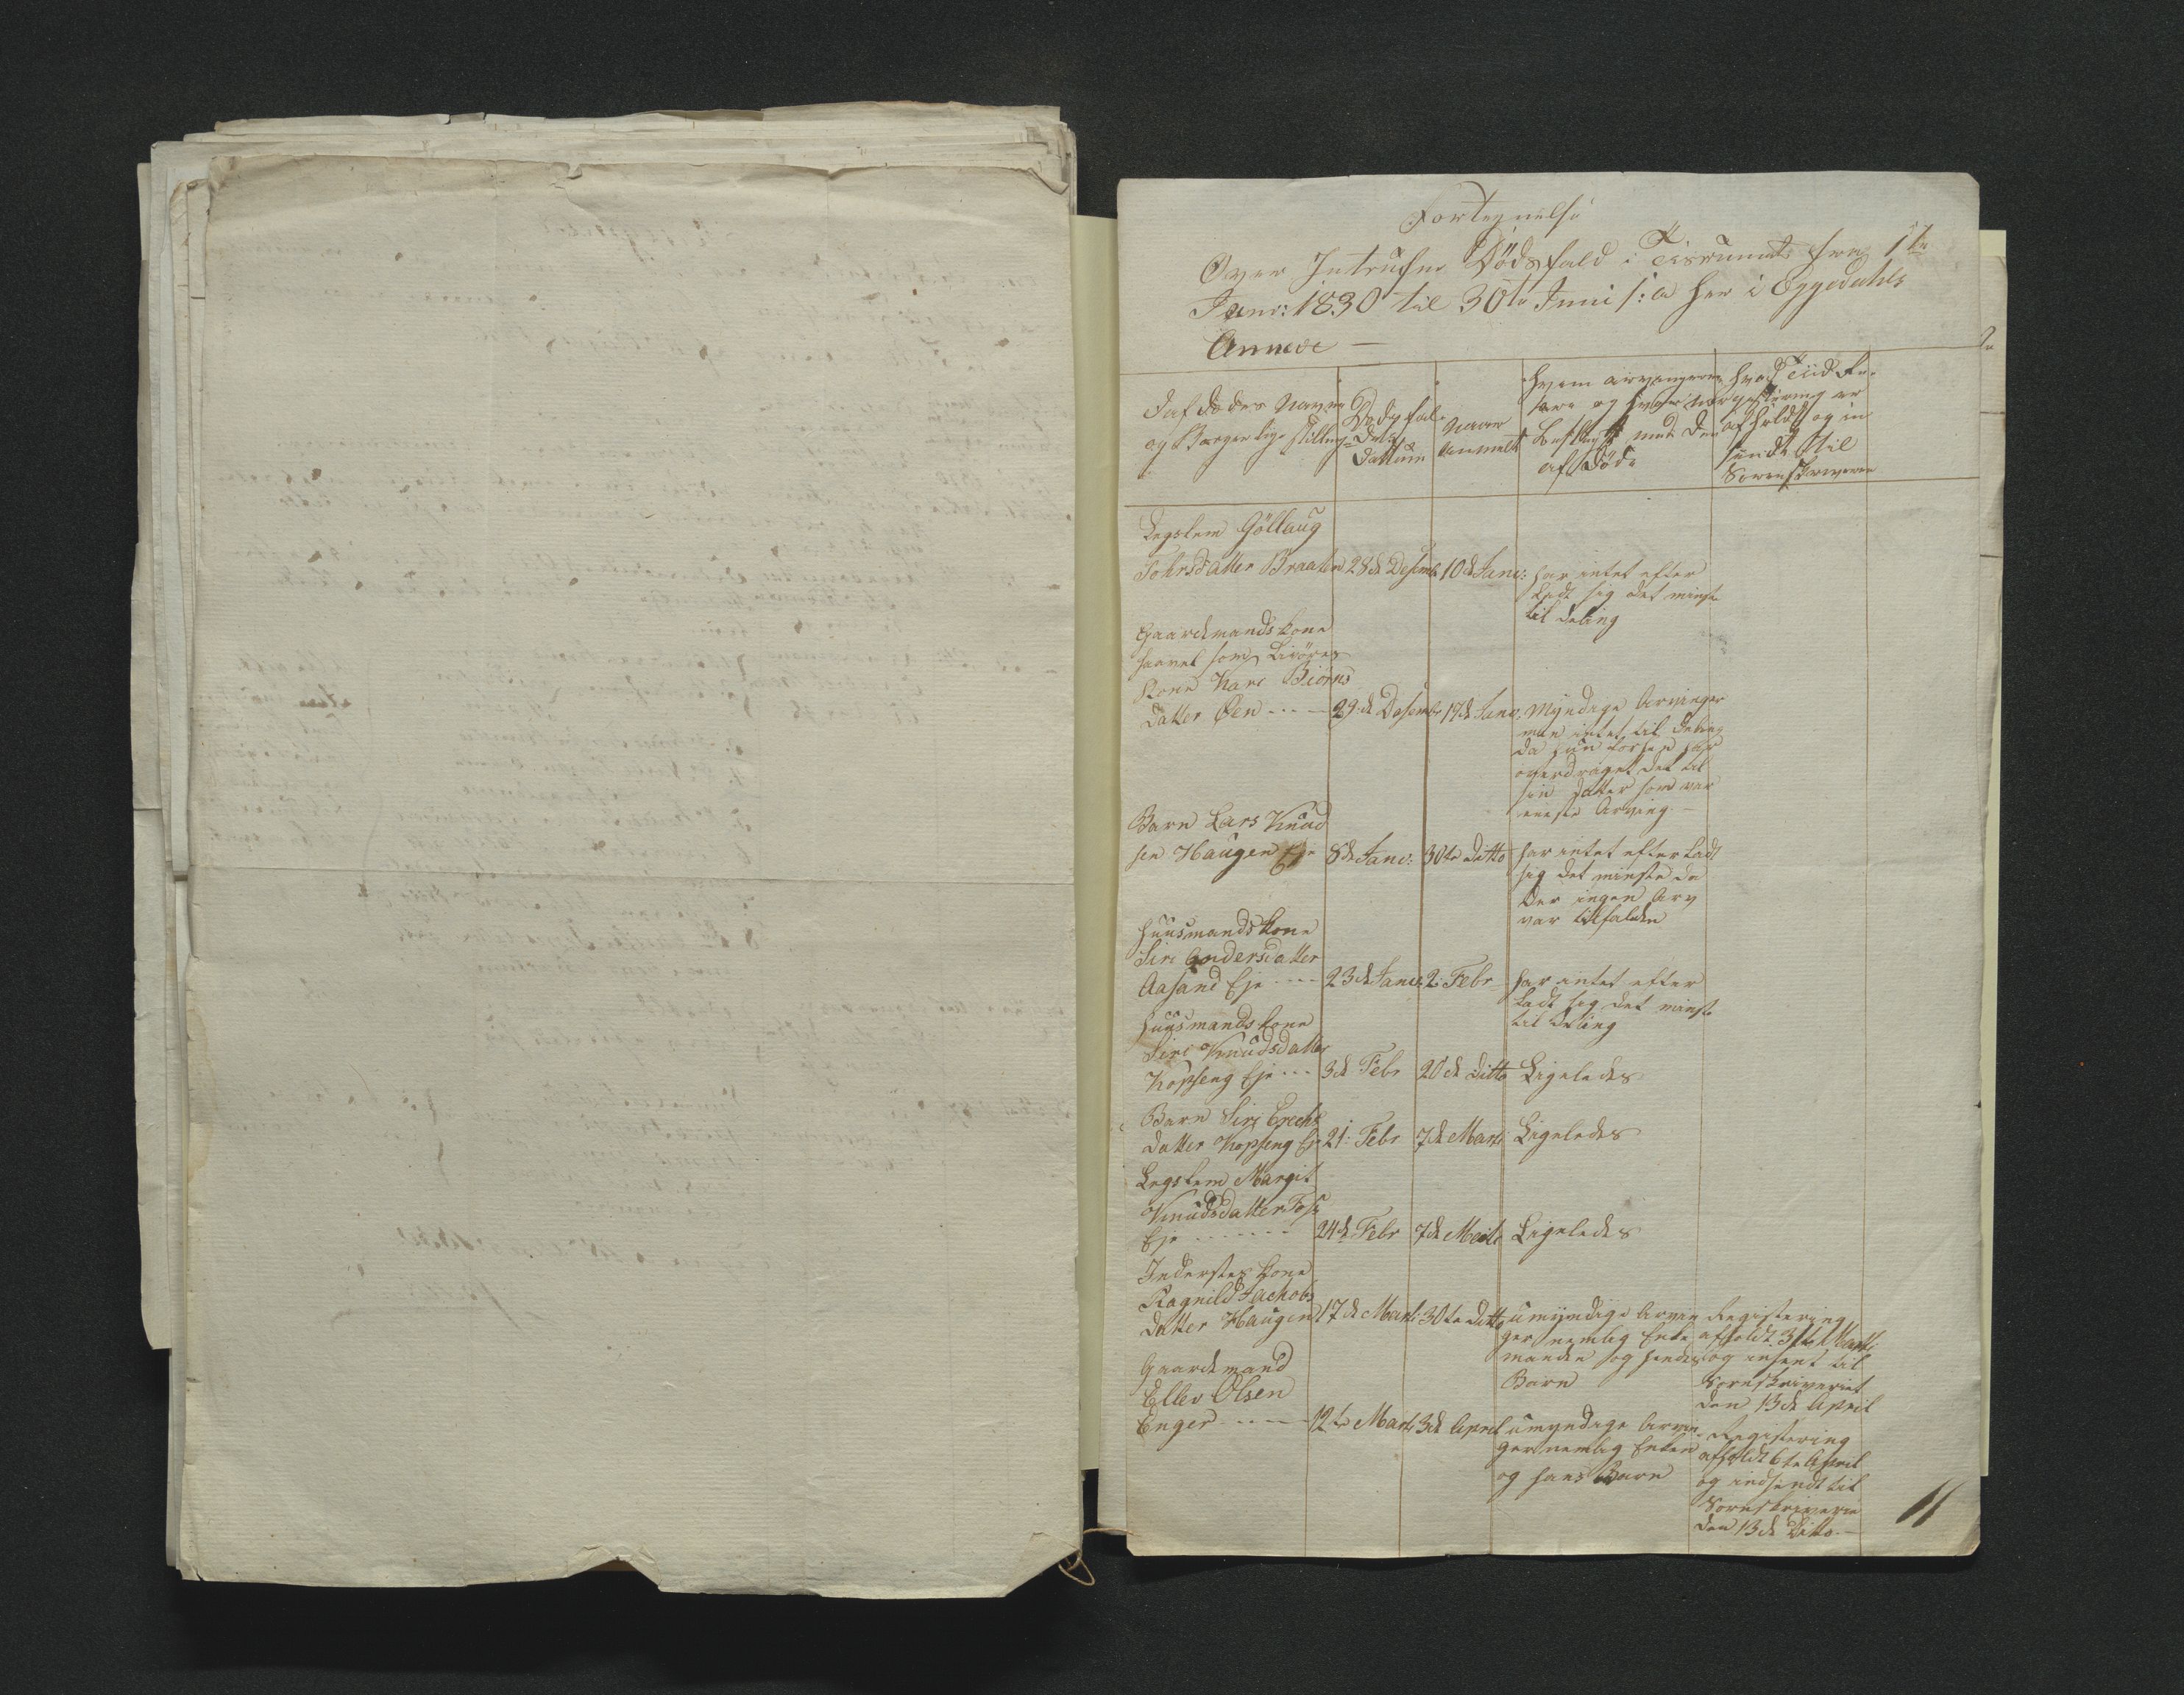 Fortegnelse
Over Intrufne Dödsfald i Tisrumet fra 1te
Janr: 1830 til 30te Juni s: a her i Eggedahls
Annexe —
Daf dødes Navne
og Borgerlige stilling
Dødsfal-
dets
Dattum
Naar
Anmelt
Hvem arvingerne
ere og hvor nær
Beslegtt med den
af Døde
Hvad Tiid Re-
gistering er
afholdt og in
sendt til
Sorenskriveren
Legslem Göllaug
Tohrsdatter Braaten 28de Desemb: 10de Janr: har intet efter
Ladt sig det minste
til deling
Gaardmandskone
saavel som Livöres
Kone Kari Biörns
datter Öen ---- 29de Desembr 17de Janr. Myndige Arvinger
men intet til Deling
da hun forhen har
overdraget det til
sin datter som var
eneste Arving. —
Barn Lars Knud
sen Haugen Eje 8de Janr: 30te ditto har intet efterladt
sig det minste da
der ingen Arv
var tilfalden
Huusmandskone
Siri Andersdatter
Aasand Eje ---- 23de Janr. 2. Febr har intet efter
Ladt sig det minste
til deling
Huusmandskone
Siri Knudsdatter
Kopseng Eje --- 3de Febr 20de ditto Ligeledes
Barn Siri Erechs
datter Kopseng Eje 21. Febr 7de Marti Ligeledes
Legslem Margit
Knudsdatter Foss
Eje ------- 24de Febr 7de Marti Ligeledes
Inderstes Kone
Ragnild Jachobs
datter Haugen 17de Marti 30te ditto umyndige Arvin
ger nemlig Enke
manden og hendes
Barn
Registering
afholdt 31te Marti
og insent til
Sorenskriveriet
den 13de April
Gaardmand
Ellev Olsen
Enger ----- 12te Marti 3de April umyndige Arvin-
ger nemlig Enken
og hans Barn
Registering
afholdt 6te April
og indsendt til
Sorenskriveren
den 13de Ditto. —
11